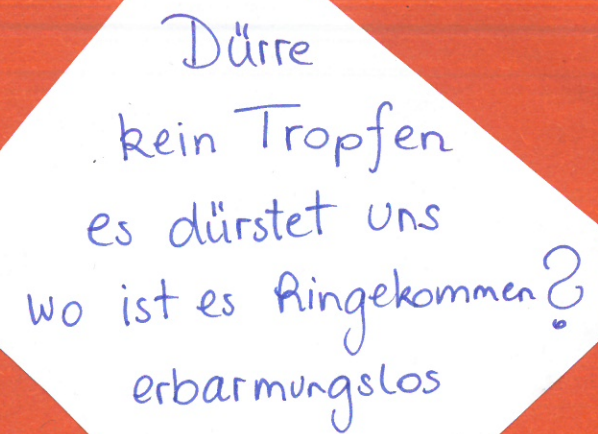 Dürre
kein Tropfen
es dürstet uns
wo ist es hingekommen?
erbarmungslos